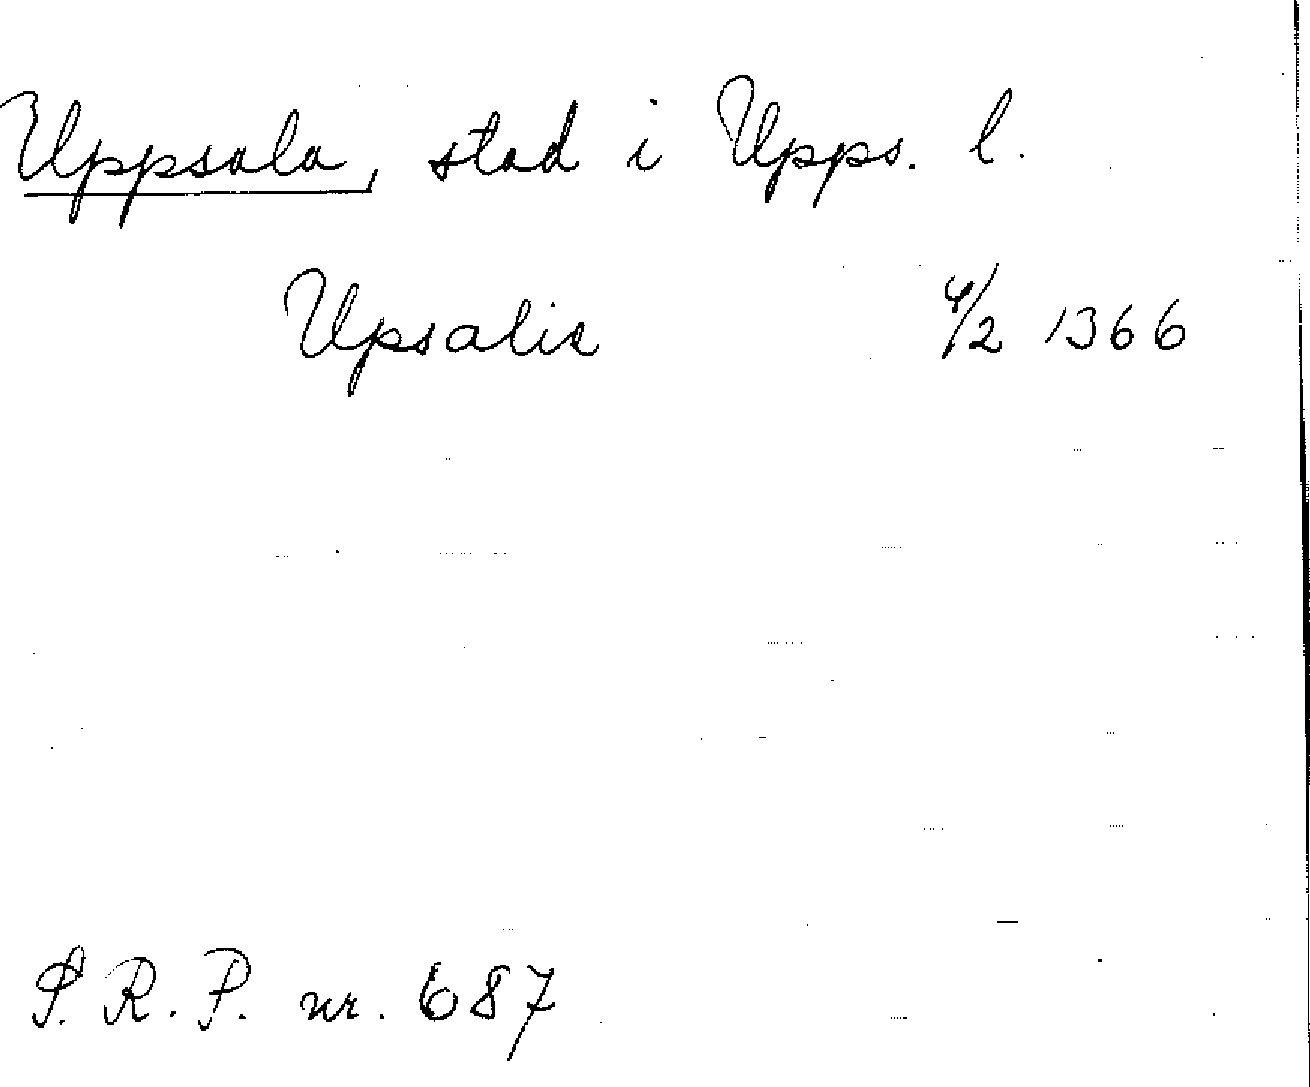 Uppsala, stad i Upps. l.
Upsalis 4/2 1366
S. R. P. nr. 687